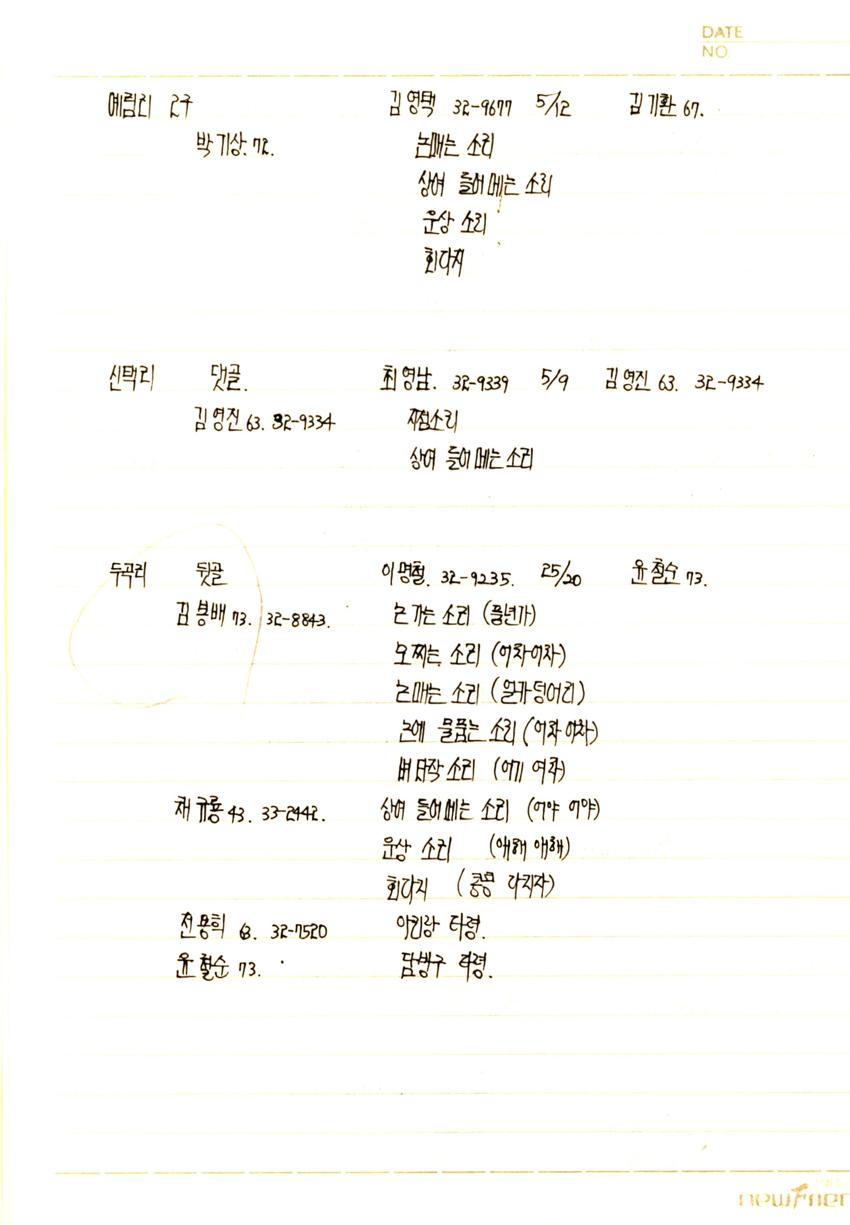 DATE
NO.
예림리 2구 김영택 32-9677 5/12 김기환 67.
박기상. 72. 논매는 소리
상여 들어메는 소리
운상 소리
회다지
신택리 댓골. 최영남. 32-9339 5/9 김영진 63. 32-9334
김영진 63. 32-9334 지점소리
상여 들어메는 소리
두곡리 뒷골 이명철. 32-9235. 25/20 윤철순 73.
김봉배 73. 32-8843. 논가는 소리 (풀년가)
모찌는 소리 (어차어차)
논매는 소리 (얼카덩어리)
논에 물품는 소리 (어차어차)
벼타작 소리 (여기 여차)
채규룡 43. 33-2442. 상여 들어메는 소리 (어야 어야)
운상 소리 (애해 애해)
회다지 (콩콩 다지자)
전용희 63. 32-7520 아리랑 타령.
윤철순 73. 담방구 타령.
newFrien